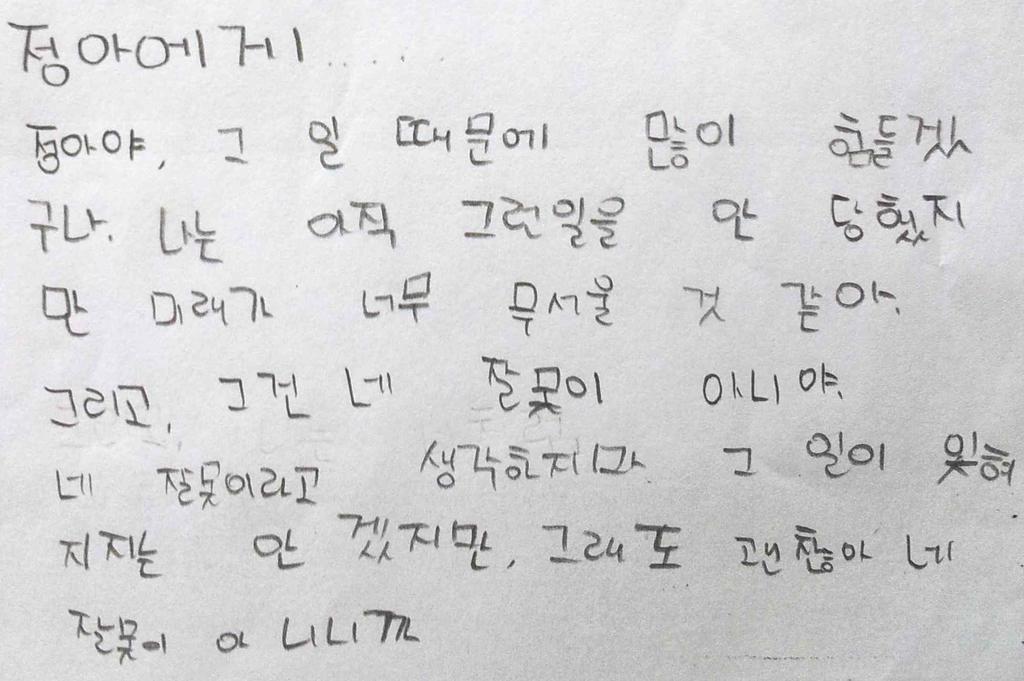 정아에게.....
정아야, 그 일 때문에 많이 힘들겠
구나. 나는 아직 그런일을 안 당했지
만 미래가 너무 무서울 것 같아.
그리고, 그건 네 잘못이 아니야.
네 잘못이라고 생각하지마 그 일이 잊혀
지지는 안 겠지만, 그래도 괜찮아 네
잘못이 아 니니까